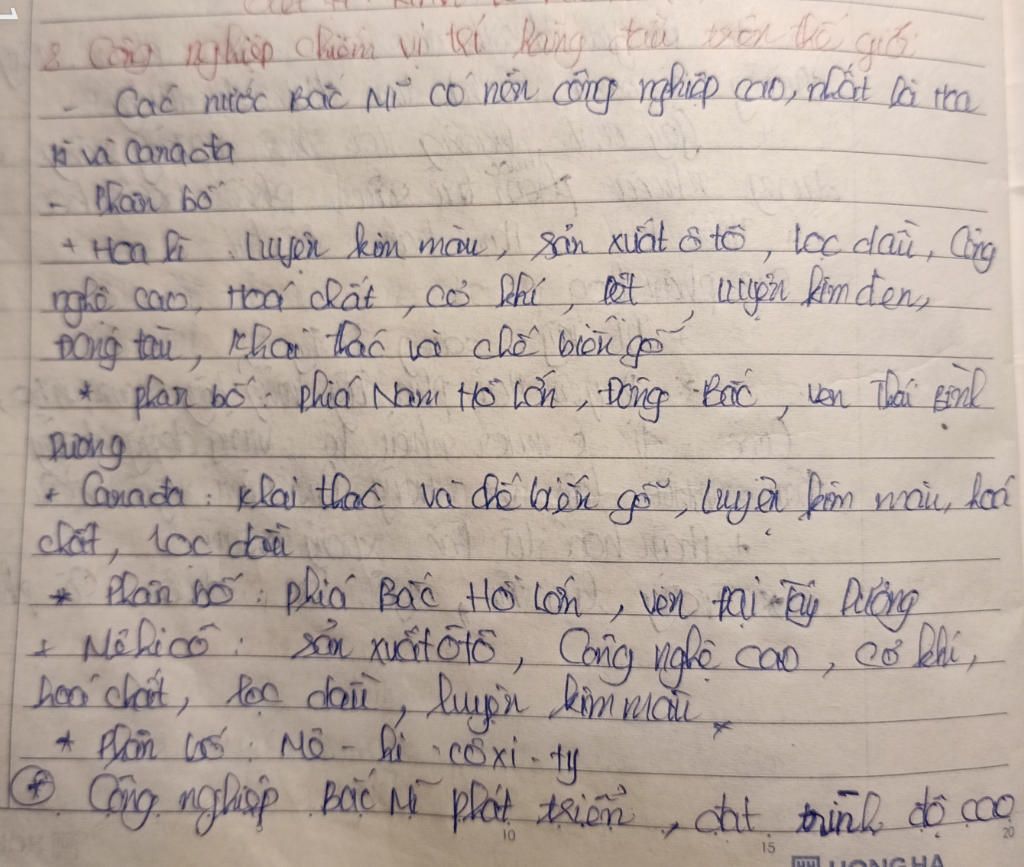 2. Công nghiệp chiếm vị trí hàng đầu trên thế giới
- Các nước Bắc Mĩ có nền công nghiệp cao, nhất là Hoa
kì và Canada
- Phân bố
+ Hoa kì: luyện kim màu, sản xuất ô tô, lọc dầu, Công
nghệ cao, Hoá chất, cơ khí, dệt, luyện kim đen,
Đóng tàu, Khai thác và chế biến gỗ
* phân bố: phía Nam Hồ Lớn, Đông-Bắc, ven Thái Bình
Dương
+ Canada: Khai thác và chế biến gỗ, luyện kim màu, hoá
chất, lọc dầu
* Phân bố: phía Bắc Hồ Lớn, ven Đại-Tây Dương
+ Mêhicô: sản xuất ô tô, Công nghệ cao, cơ khí,
hoá chất, lọc dầu, luyện kim màu
* Phân bố: Mê-hi-cô xi-ty
(+) Công nghiệp Bắc Mĩ phát triển, đạt trình độ cao
10 15 20
HONG HA